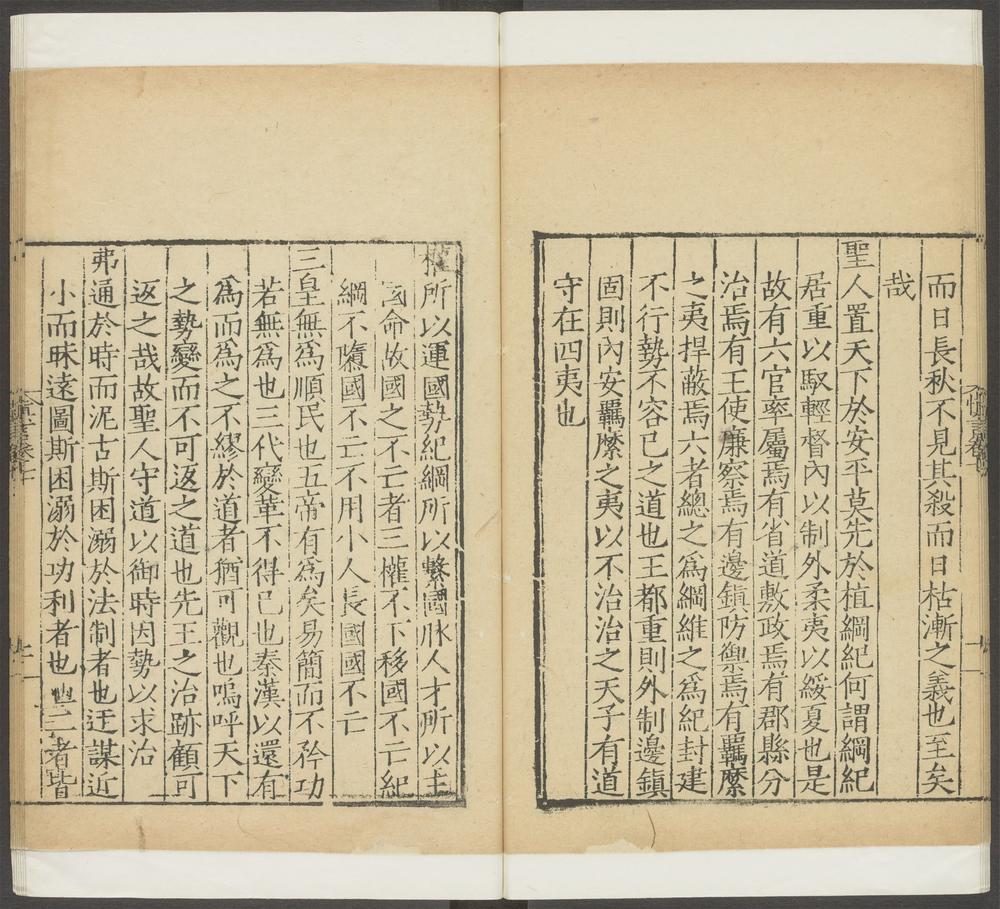 而日長秋不見其殺而日枯漸之義也至矣
哉
聖人置天下於安平莫先於植綱紀何謂綱紀
居重以馭輕督內以制外柔夷以綏夏也是
故有六官率屬焉有省道敷政焉有郡縣分
治焉有王使廉察焉有邊鎮防禦焉有羈縻
之夷捍蔽焉六者總之為綱維之為紀封建
不行勢不容已之道也王都重則外制邊鎮
固則內安羈縻之夷以不治治之天子有道
守在四夷也
權所以運國勢紀綱所以繫國脉人才所以主
國命故國之不亡者三權不下移國不亡紀
綱不隳國不亡不用小人長國國不亡
三皇無為順民也五帝有為矣易簡而不矜功
若無為也三代變革不得已也秦漢以還有
為而為之不繆於道者猶可觀也嗚呼天下
之勢變而不可返之道也先王之治跡顧可
返之哉故聖人守道以御時因勢以求治
弗通於時而泥古斯困溺於法制者也迂謀近
小而昧遠圖斯困溺於功利者也二者皆